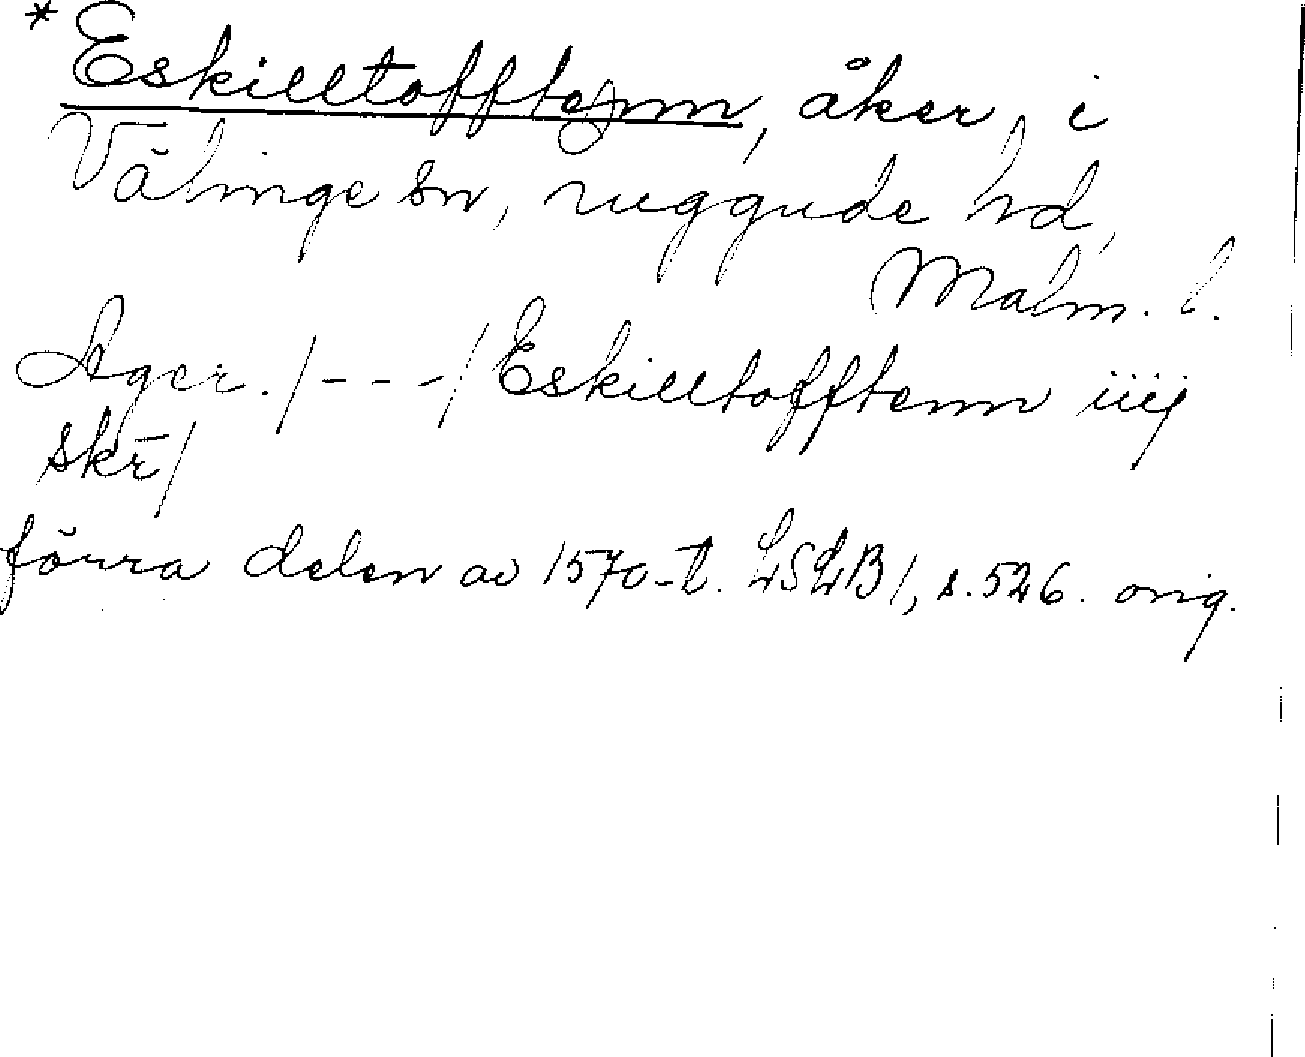 *Eskilltofftenn, åker, i
Välinge sn, ruggude hd,
Malm. l.
Ager. /---/ Eskilltofftenn iiij
skr̄/
förra delen av 1570-t. LSLB 1, s. 526. orig.